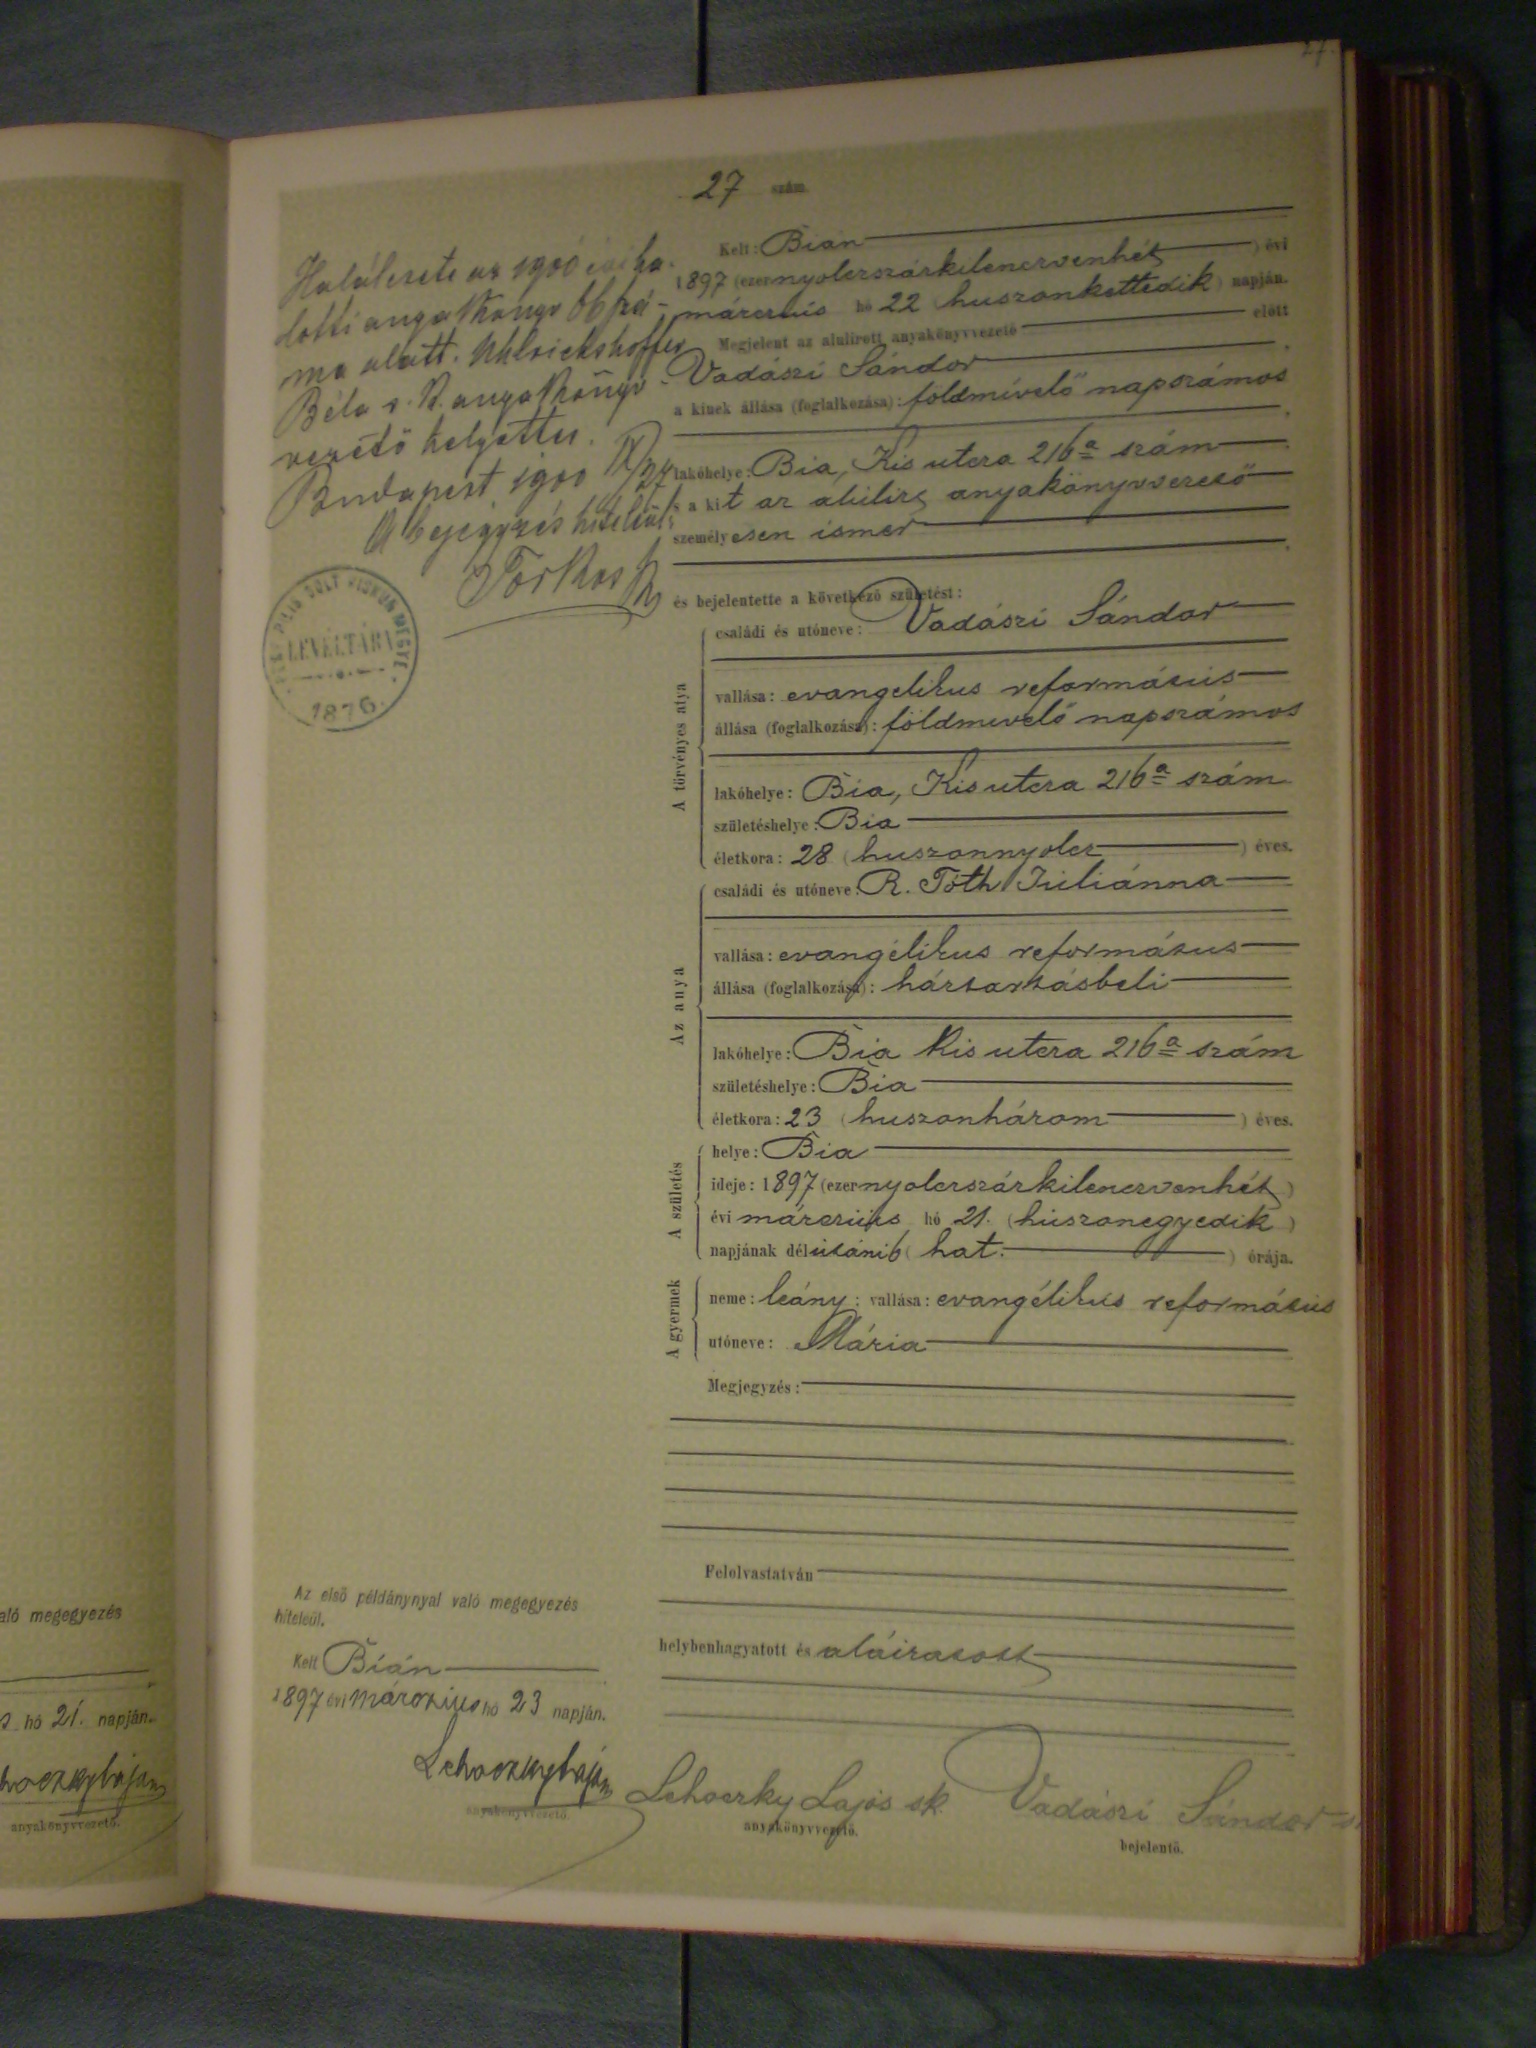 27.
27 szám.
Halálesete az 1900 évi ha-
lotti anyakönyv 66 szá-
ma alatt. Uhlrickshoffer
Béla s. k. anyakönyv-
vezető helyettes.
Budapest 1900 IX/27
A bejegyzés hiteléül:
LEVÉLTÁRA
1876.
Kelt: Bián
1897 (ezernyolczszázkilenczvenhét) évi
márczius hó 22 (huszonkettedik) napján.
Megjelent az alulirott anyakönyvvezető előtt
Vadászi Sándor
a kinek állása (foglalkozása): földmívelő napszámos
lakóhelye: Bia, Kis utcza 216a szám
s a kit az alulirt anyakönyvvezető
személyesen ismer
és bejelentette a következő születést:
A törvényes atya
családi és utóneve: Vadászi Sándor
vallása: evangelikus református
állása (foglalkozása): földmivelő napszámos
lakóhelye: Bia, Kis utcza 216a szám
születéshelye: Bia
életkora: 28 (huszonnyolcz) éves.
Az anya
családi és utóneve: R. Tóth Juliánna
vallása: evangélikus református
állása (foglalkozása): háztartásbeli
lakóhelye: Bia Kis utcza 216a szám
születéshelye: Bia
életkora: 23 (huszonhárom) éves.
A születés
helye: Bia
ideje: 1897 (ezernyolczszázkilenczvenhét)
évi márczius hó 21. (huszonegyedik)
napjának délutáni 6 (hat.) órája.
A gyermek
neme: leány; vallása: evangélikus református
utóneve: Mária
Megjegyzés:
Felolvastatván
helybenhagyatott és aláiratott
Lehoczky Lajos sk.
anyakönyvvezető.
Vadászi Sándor
bejelentő.
Az első példánynyal való megegyezés
hiteléül.
Kelt Bián
1897 évi márczius hó 23 napján.
Lehoczky Lajos
anyakönyvvezető.
való megegyezés
hó 21. napján.
anyakönyvvezető.